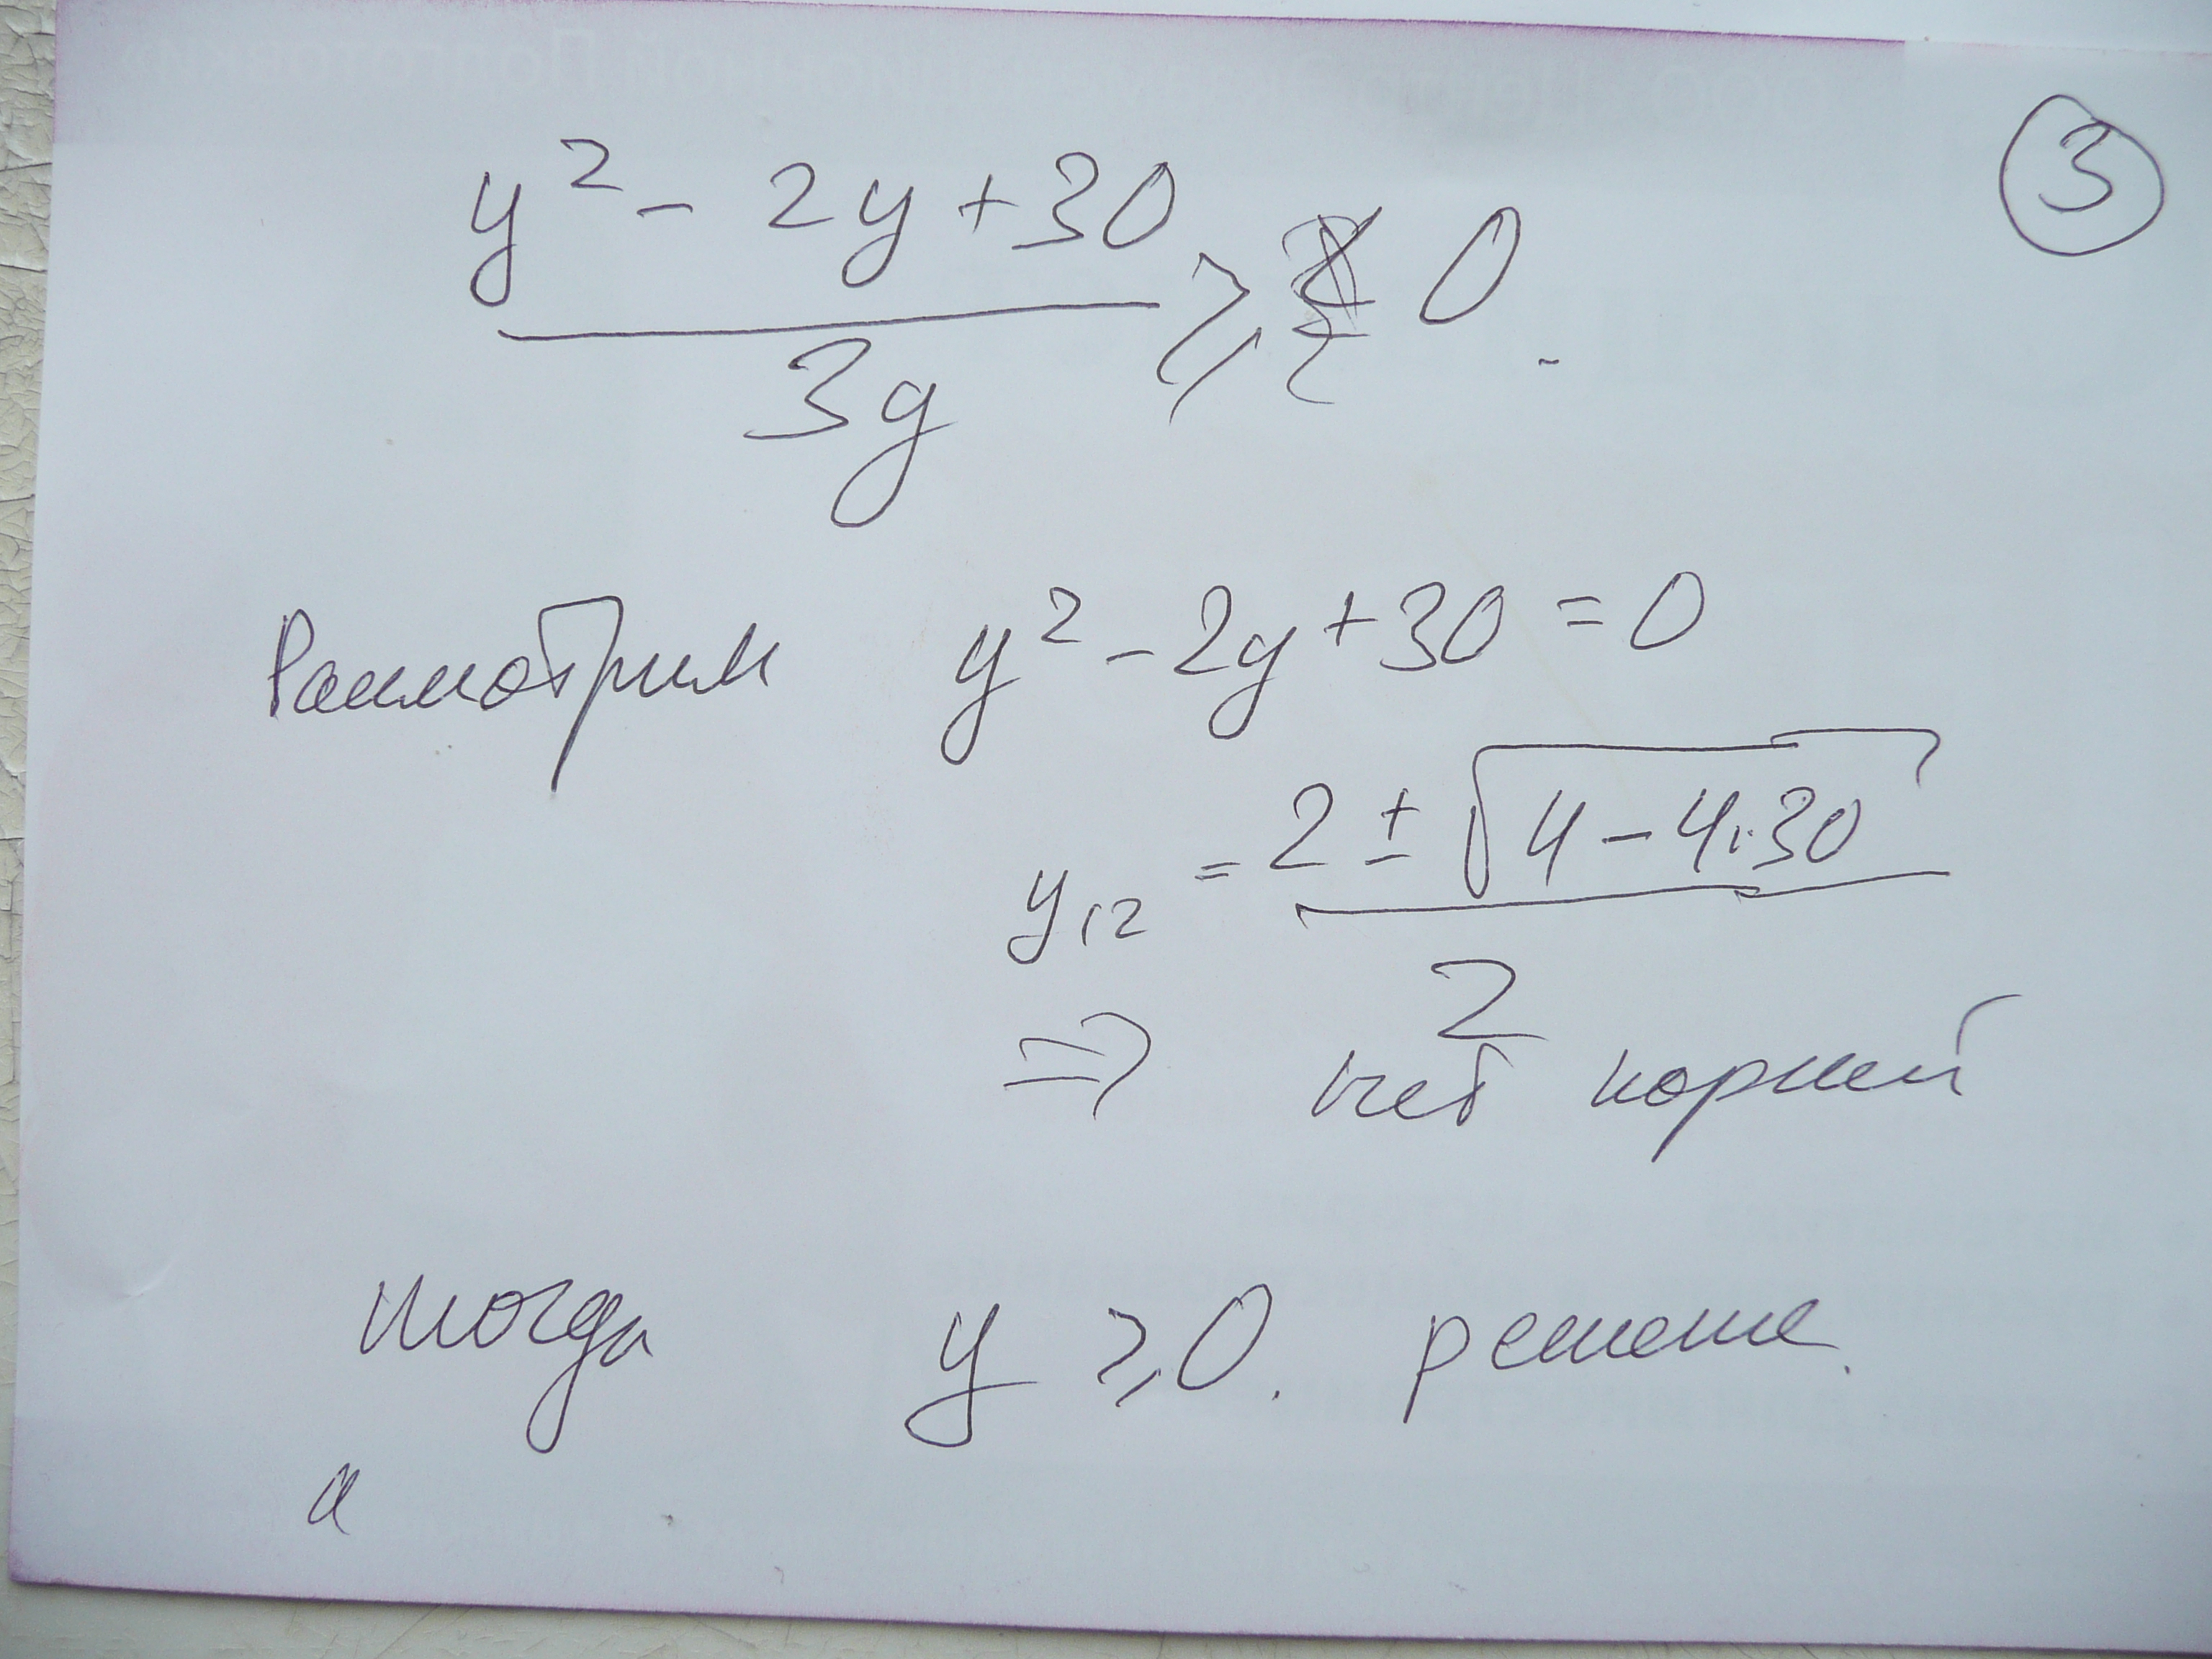 3
y² - 2y + 30 / 3y ⩾ 0.
Рассмотрим y² - 2y + 30 = 0
y₁₂ = 2 ± √4 - 4·30 / 2
⇒ нет корней
тогда y ⩾ 0. решение.
и